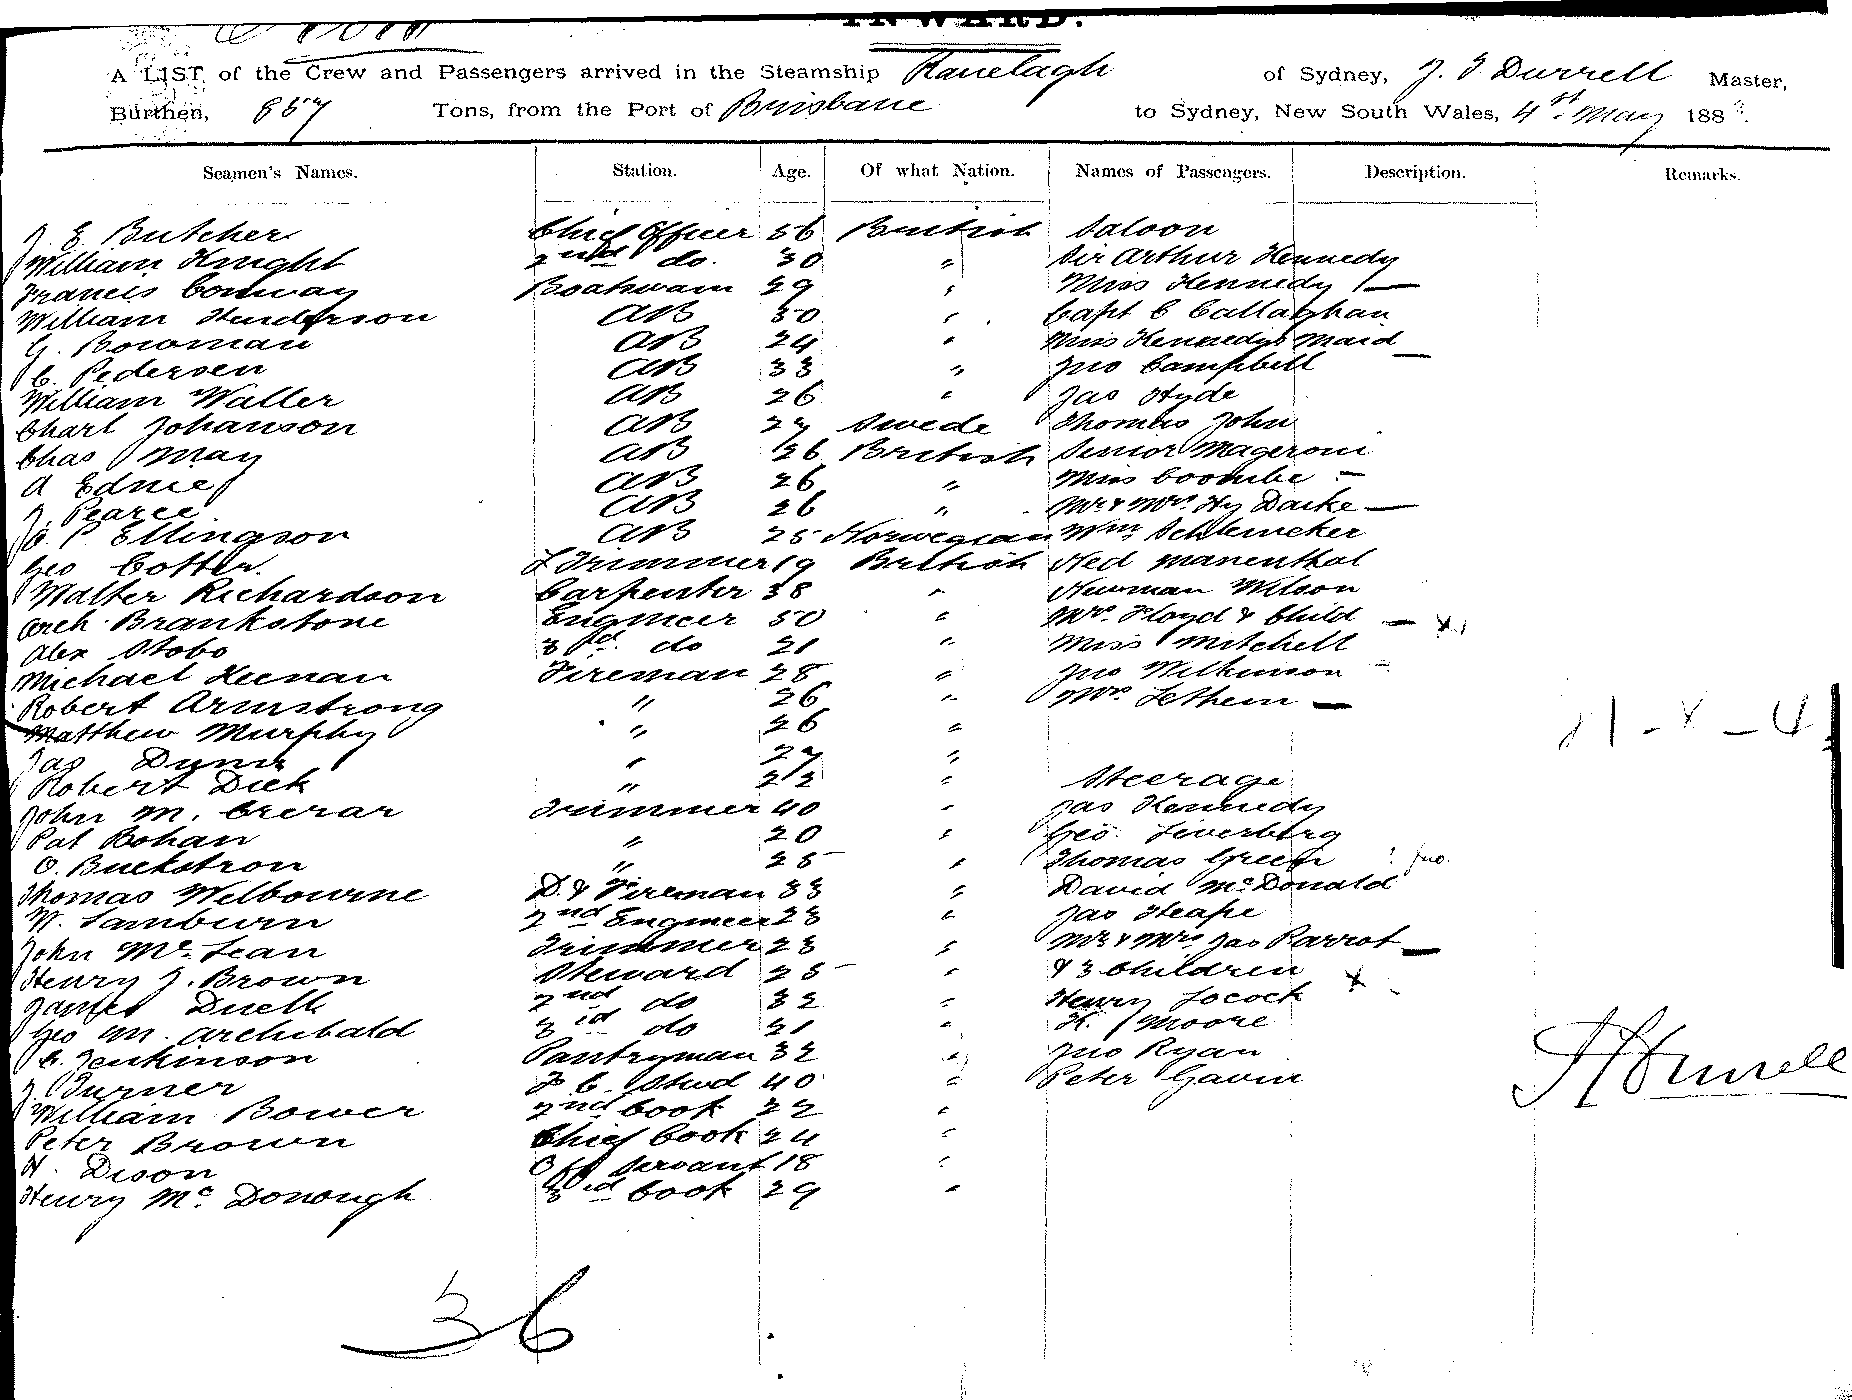 INWARD.
A LIST of the Crew and Passengers arrived in the Steamship Ranelagh of Sydney, J. S Durrell Master,
Burthen, 857 Tons, from the Port of Brisbane to Sydney, New South Wales, 4st May 188
Seamen's Names. Station. Age. Of what Nation. Names of Passengers. Description. Remarks.
J. E. Butcher Chief Officer 56 British Saloon
William Knight 2nd do. 30 " Sir Arthur Kennedy
Francis Conway Boatswain 29 " Miss Kennedy 1 —
William Henderson AB 50 " Capt C Callaghan
G. Bowman AB 24 " Miss Kennedys Maid —
C. Pedersen AB 33 " Jno Campbell
William Waller AB 26 " Jas Hyde
Charl Johanson AB 27 Swede Thomas John
Chas May AB 26 British Senior Mageroni
A Ednie AB 26 " Miss Coombe —
J. Pearce AB 26 " Mr & Mrs Hy Darke —
P Ellingson AB 25 Norwegian Wm Schleneker
Geo Cotter. L Trimmer 19 British Ned Manenthal
Walter Richardson Carpenter 38 " Newman Wilson
Arch. Brankstone Engineer 50 " Mrs Floyd & Child —
Alex Stobo 3rd do 21 " Miss Mitchell
Michael Keenan Fireman 28 " Jno Wilkinson
Robert Armstrong " 26 " Mrs Lethem —
Matthew Murphy " 26 "
Jas Dunn " 27 "
Robert Dick " 23 " Steerage
John M. Crerar Trimmer 40 " Jas Kennedy
Pat Bohan " 20 " Geo. Leverberg
O. Buckstron " 25 " Thomas Green Jno.
Thomas Welbourne D. & Fireman 33 " David McDonald
W. Lamburn 2nd Engineer 23 " Jas Heape
John McLean Trimmer 23 " Mr & Mrs Jas Parrot —
Henry J. Brown Steward 25 " & 3 Children
James Duell 2nd do 32 " Henry Locock
Geo M. Archibald 3rd do 21 " H. Moore
C. Jenkinson Pantryman 32 " Jno Ryan
J. Turner F C. Stwd 40 " Peter Gavin
William Bower 2nd Cook 22 "
Peter Brown Chief Cook 24 "
H. Dison Off Servant 18 "
Henry McDonough 3rd Cook 29 "
36